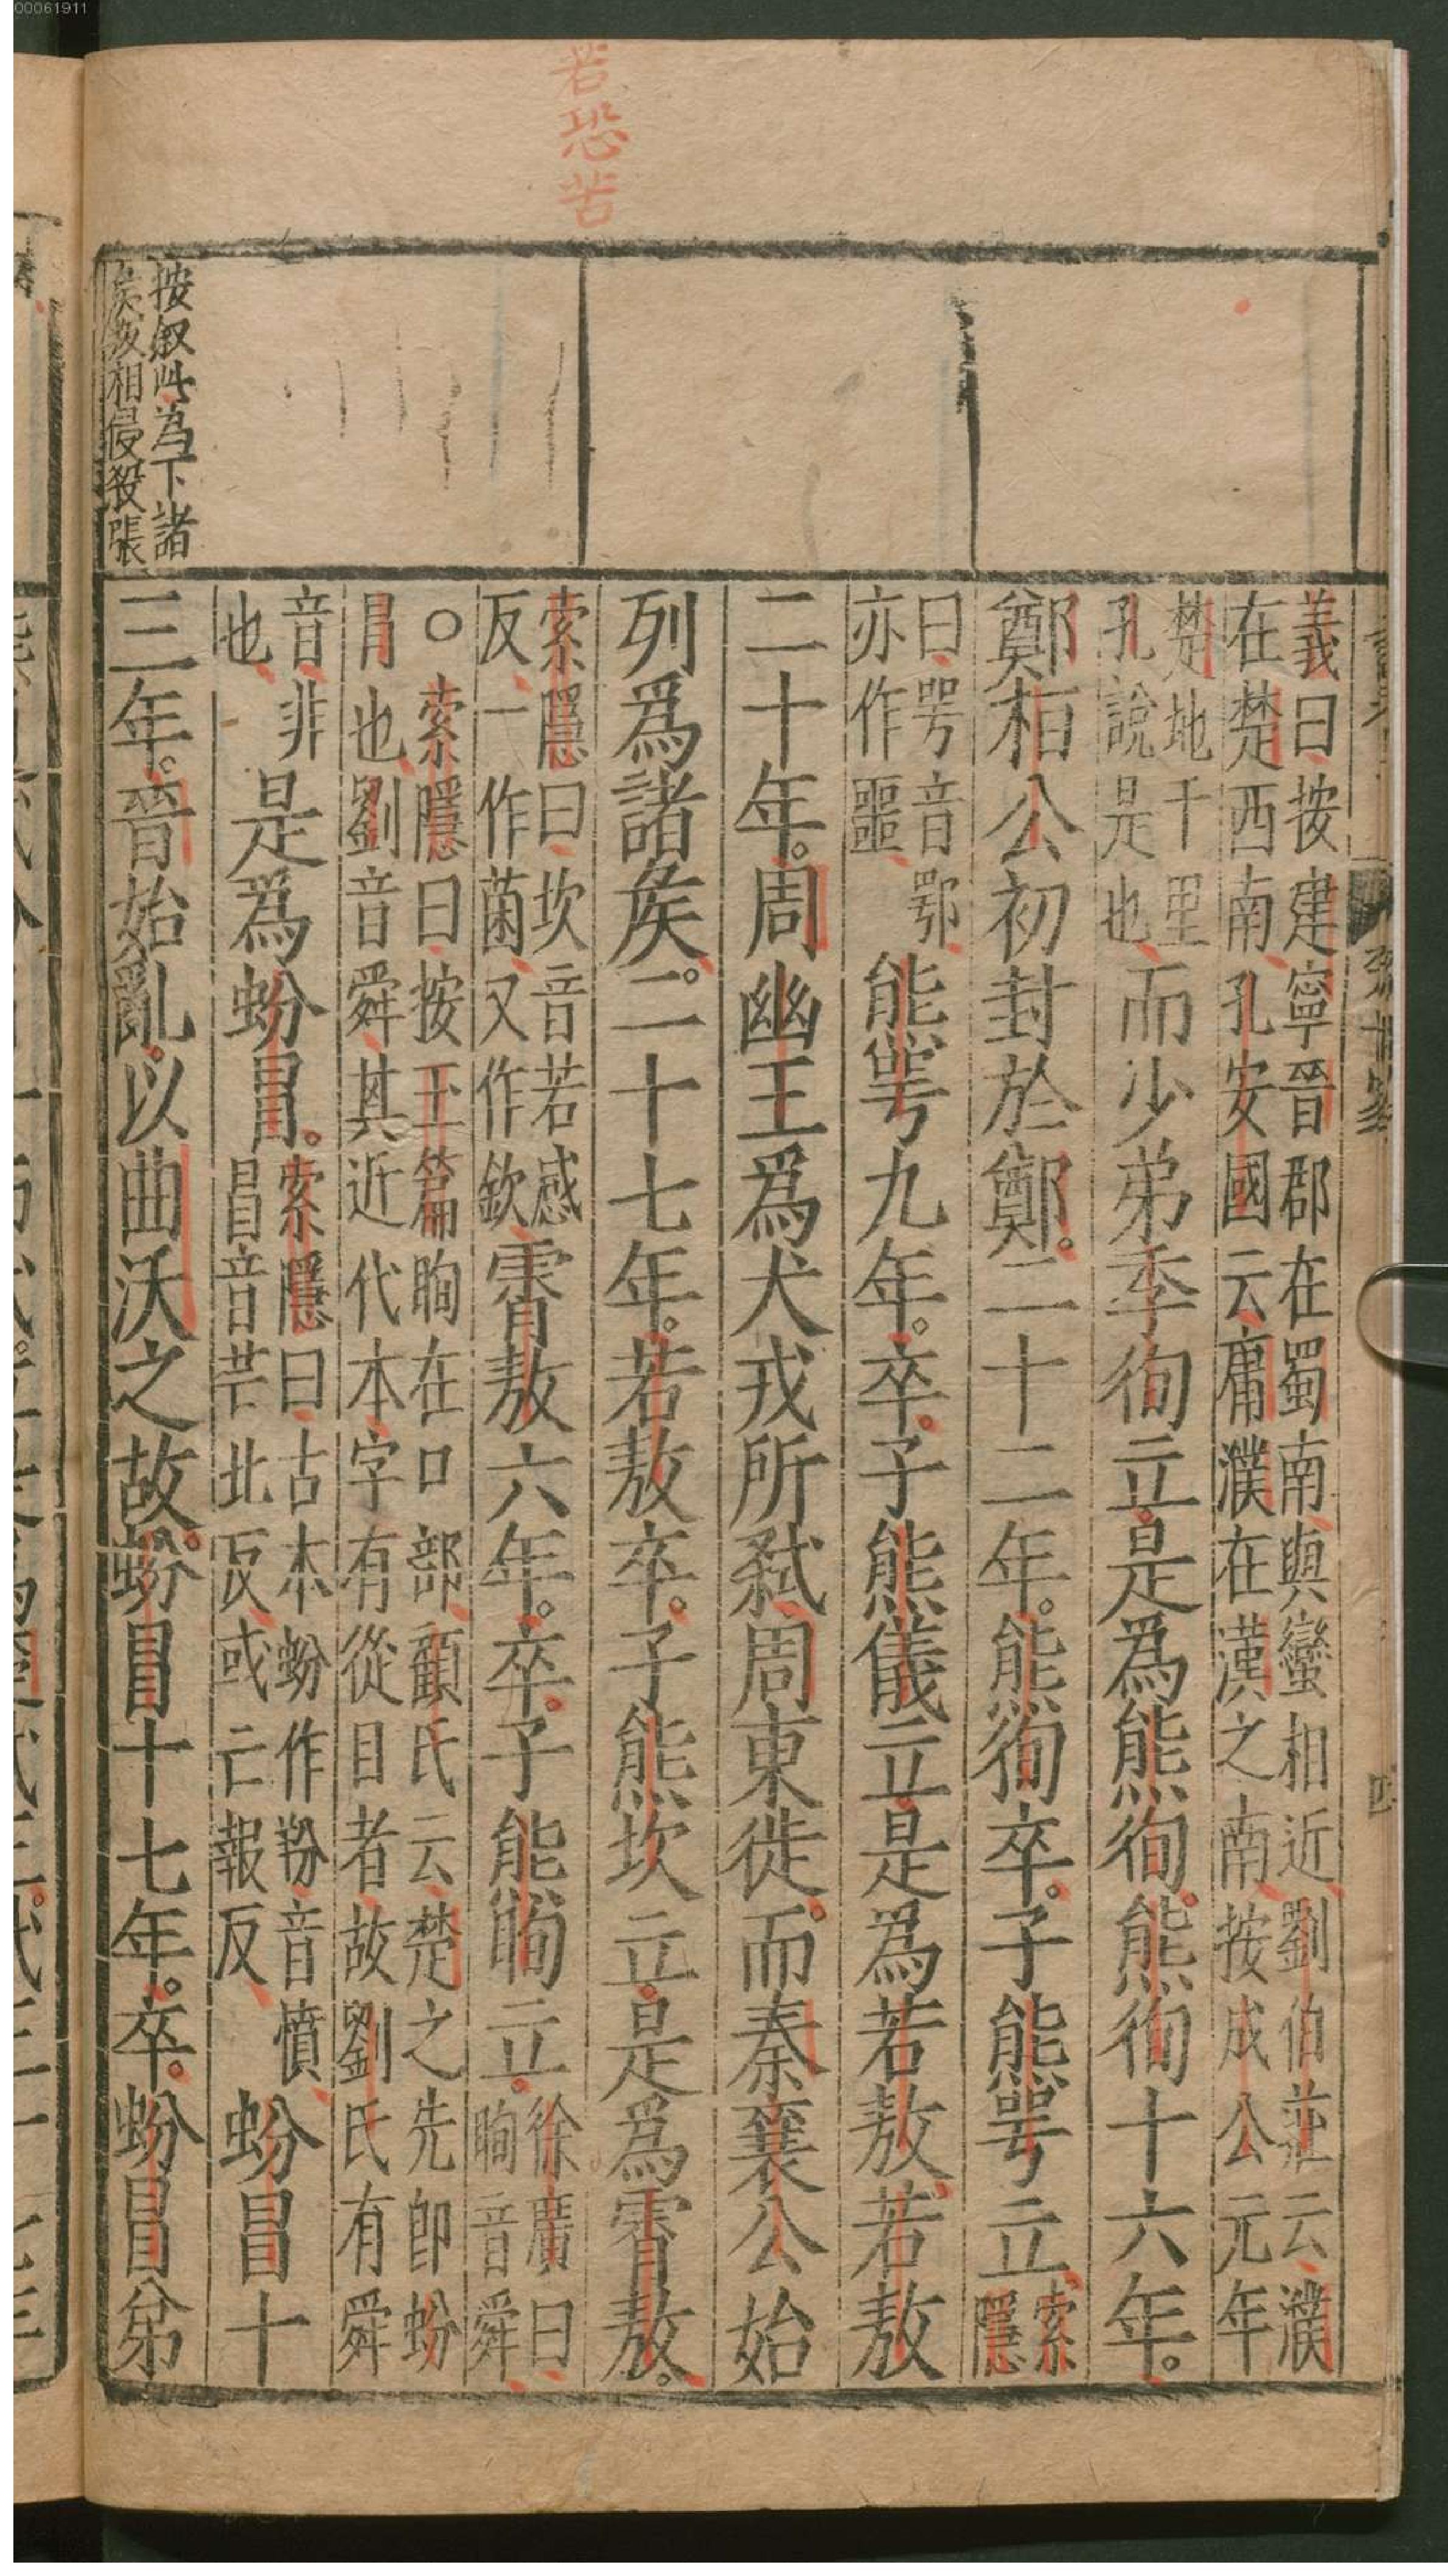 00061911
若恐苦
按叙此為下諸
矦叛相侵殺張
義曰按建寧晉郡在蜀南與蠻相近劉伯莊云濮
在楚西南孔安國云庸濮在漢之南按成公元年
楚地千里
孔說是也
而少弟季徇立是爲熊徇熊徇十六年
鄭桓公初封於鄭二十二年熊徇卒子熊咢立
索
隱
曰咢音鄂
亦作噩
熊咢九年卒子熊儀立是爲若敖若敖
二十年周幽王爲犬戎所弒周東徙而秦襄公始
列爲諸矦二十七年若敖卒子熊坎立是爲霄敖
索隱曰坎音若感
反一作菌又作欽
霄敖六年卒子熊眴立
徐廣曰
眴音舜
○索隱曰按玉篇眴在口部顧氏云楚之先即蚡
冒也劉音舜其近代本字有從目者故劉氏有舜
音非
也
是爲蚡冒
索隱曰古本蚡作羒音憤
冒音芒北反或亡報反
蚡冒十
三年晉始亂以曲沃之故蚡冒十七年卒蚡冒弟
四